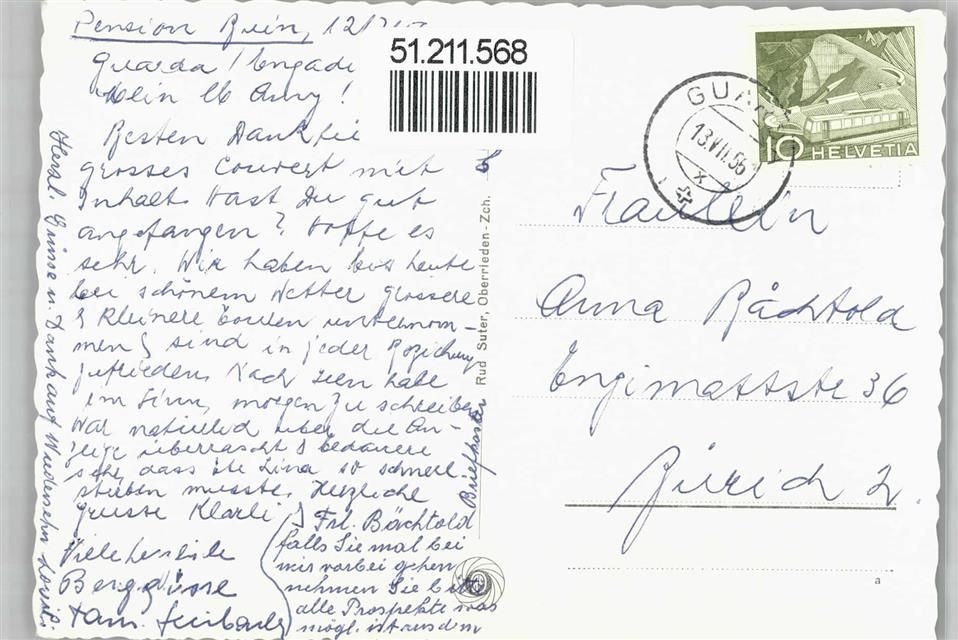 Pension Ruin, 12/7
Guarda / Engadi
Mein lb Anny !
Besten Dank für
grosses Couvert mit
Inhalt. Hast Du gut
angefangen ? Hoffe es
sehr. Wir haben bis heute
bei schönem Wetter grössere
& kleinere Touren unternom-
men & sind in jeder Beziehung
zufrieden. Nach
im Sinn, morgen zu schreiben
War natürlich über die An-
zeige überrascht & bedauere
sehr, dass Lina so schnell
sterben musste. Herzliche
Grüsse Klärli &
Viele herzliche
Berggrüsse
Fam.
Frl. Bächtold
falls Sie mal bei
mir vorbei gehen
nehmen Sie bitte
alle Prospekte was
mögl. ist aus dem
Briefkasten
Herzl. Grüsse u. Dank auf Wiedersehn
51.211.568
Rud Suter, Oberrieden-Zch.
GUARDA
13.VII.56
X
10 HELVETIA
Fräulein
Anna Bächtold
Engimattstr 36
Zürich 2.
a